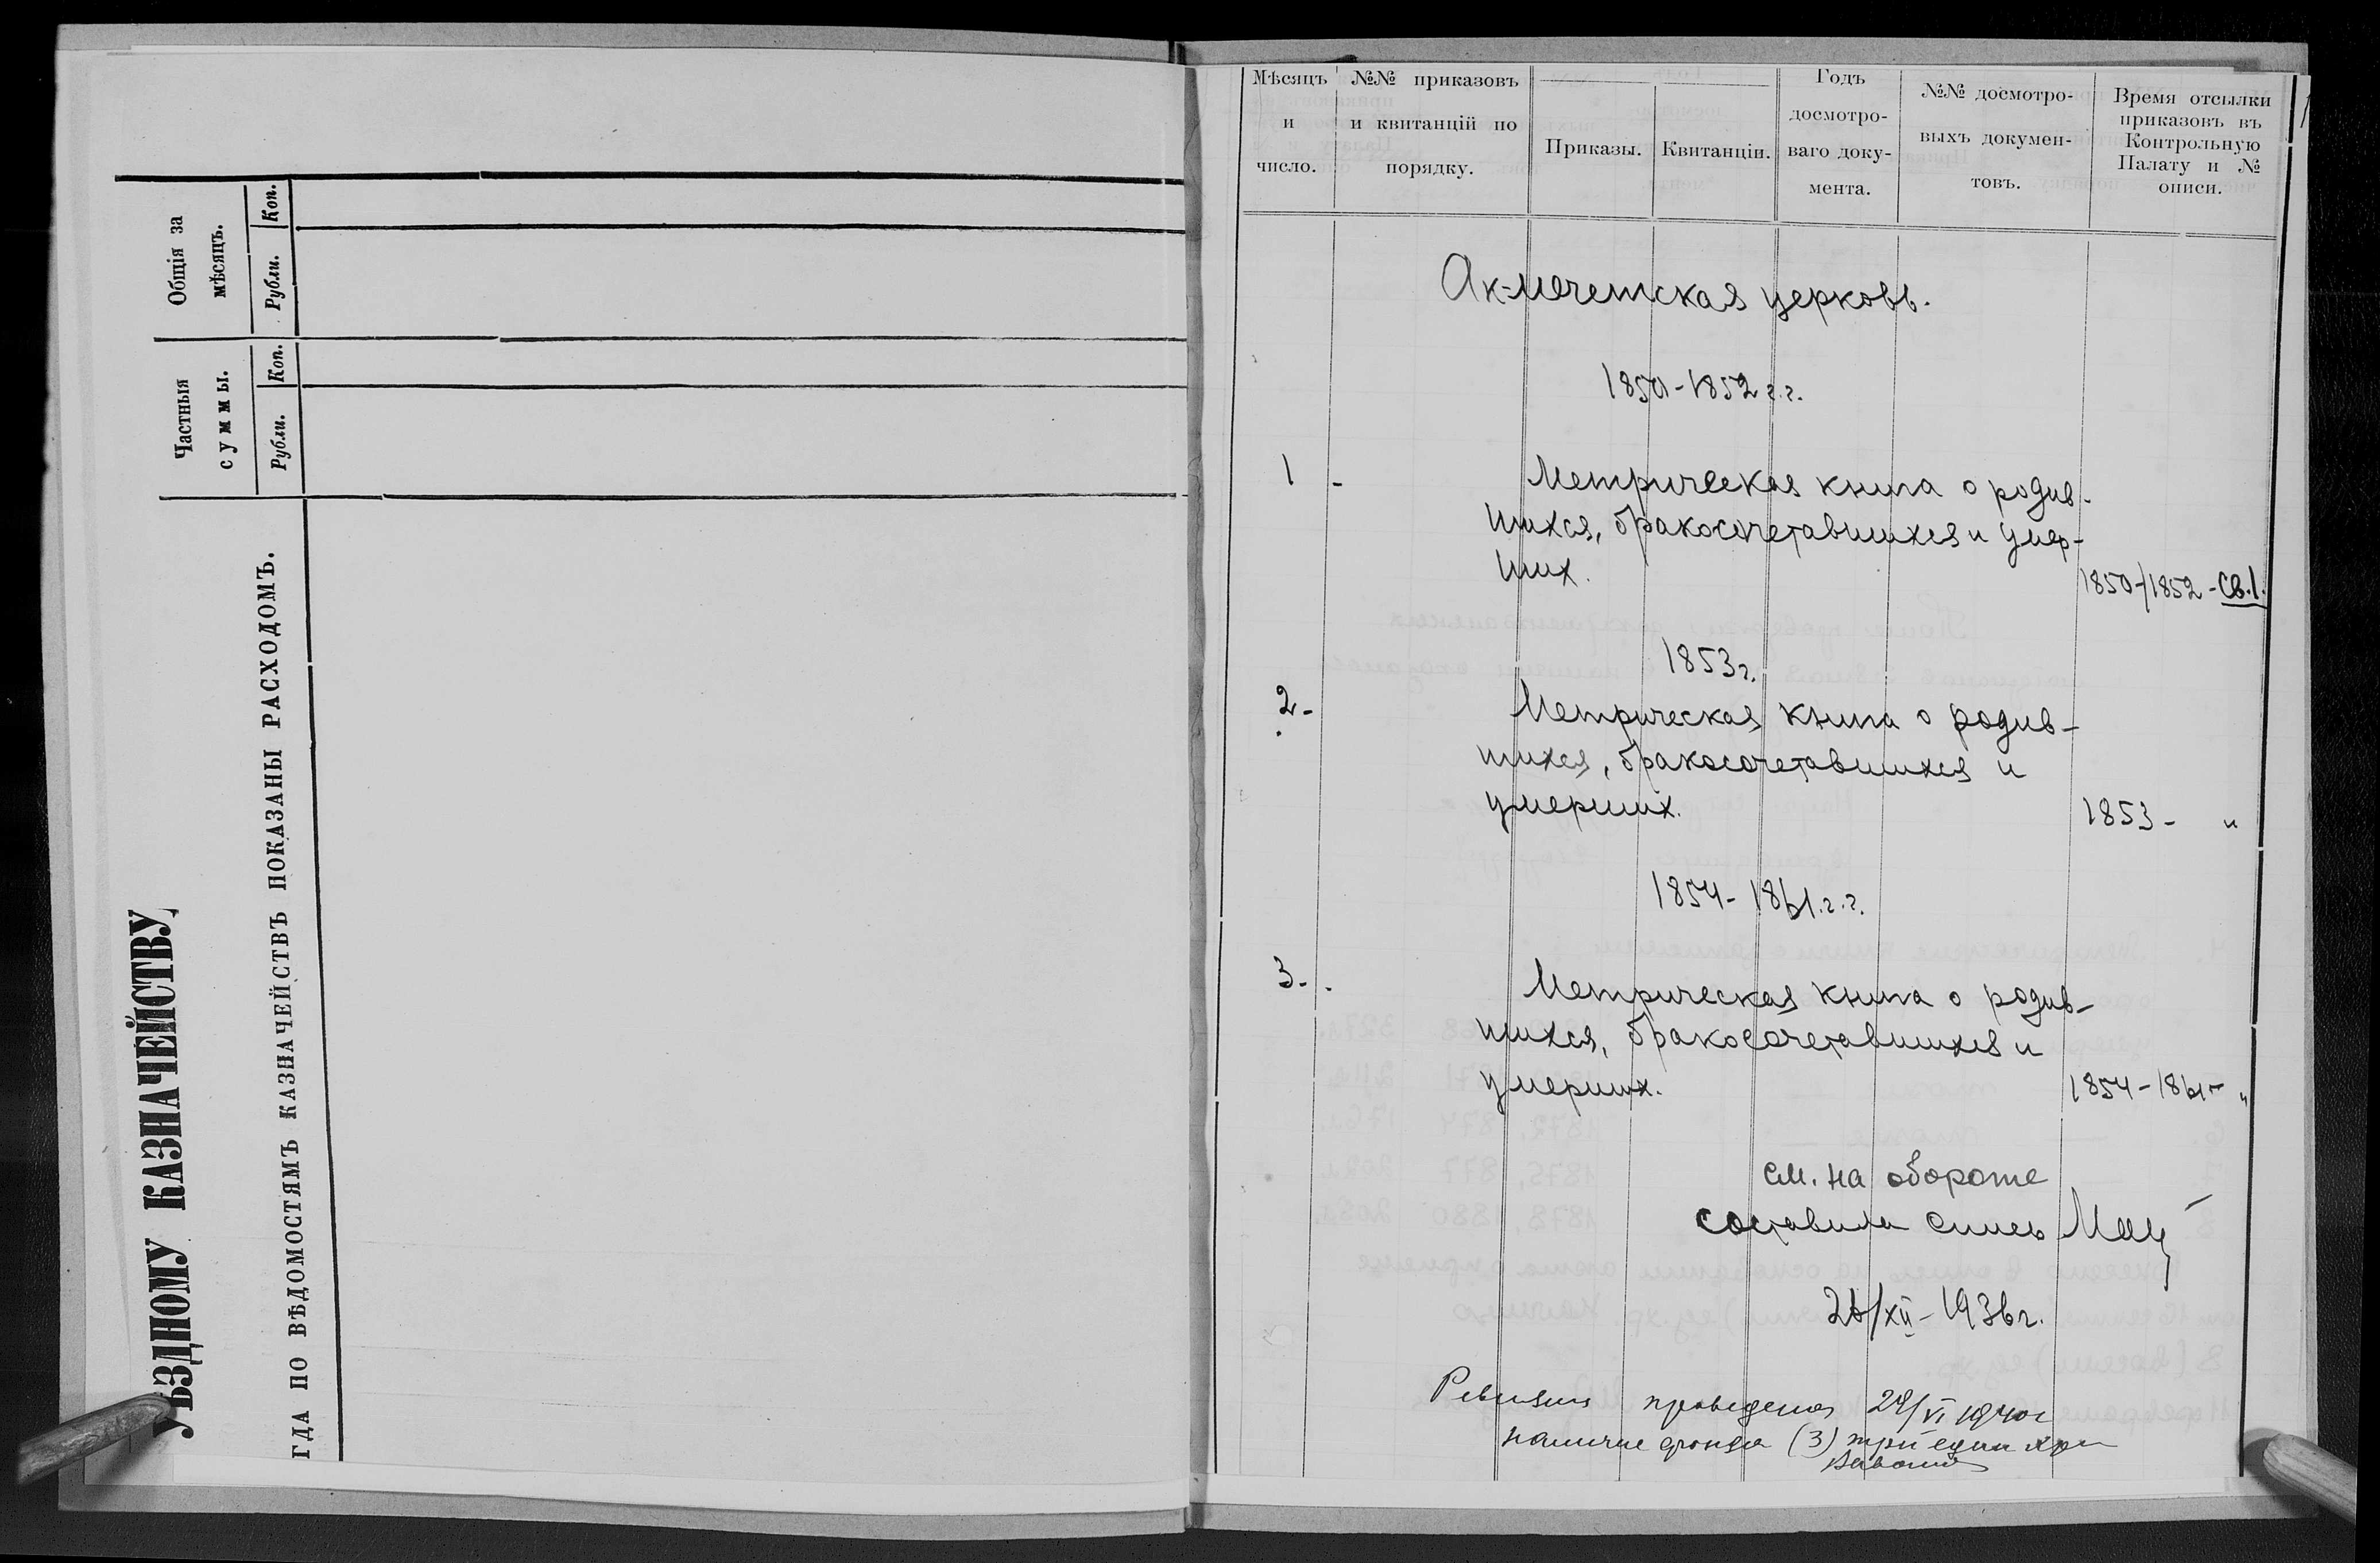 УѢЗДНОМУ КАЗНАЧЕЙСТВУ,
ГДА ПО ВѢДОМОСТЯМЪ КАЗНАЧЕЙСТВЪ ПОКАЗАНЫ РАСХОДОМЪ.
Частныя
суммы.
Рубли. Коп.
Общія за
мѣсяцъ.
Рубли. Коп.
Мѣсяцъ
и
число.
№№ приказовъ
и квитанцій по
порядку.
Приказы.
Квитанціи.
Годъ
досмотро-
ваго доку-
мента.
№№ досмотро-
выхъ докумен-
товъ.
Время отсылки
приказовъ въ
Контрольную
Палату и №
описи.
1
Ак-мечетская церковь.
1850-1852 г.г.
1 - Метрическая книга о родив-
шихся, бракосочетавшихся и умер-
ших. 1850-1852 - Св.1.
1853 г.
2 - Метрическая книга о родив-
шихся, бракосочетавшихся и
умерших. 1853 - "
1854-1861 г.г.
3 - Метрическая книга о родив-
шихся, бракосочетавшихся и
умерших. 1854-1861 - "
см. на обороте
составила опись
26/XII-1936 г.
Ревизия проведена 29/VI 1940 г
наличие фонда (3) три един хран